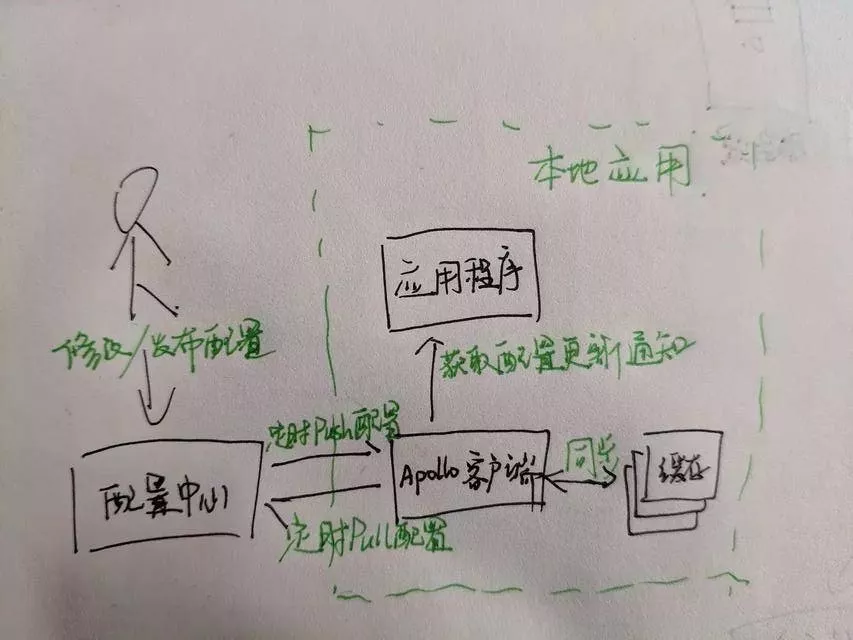 本地应用
应用程序
修改/发布配置
获取配置更新通知
定时Push配置
Apollo客户端
同步
缓存
配置中心
定时Pull配置